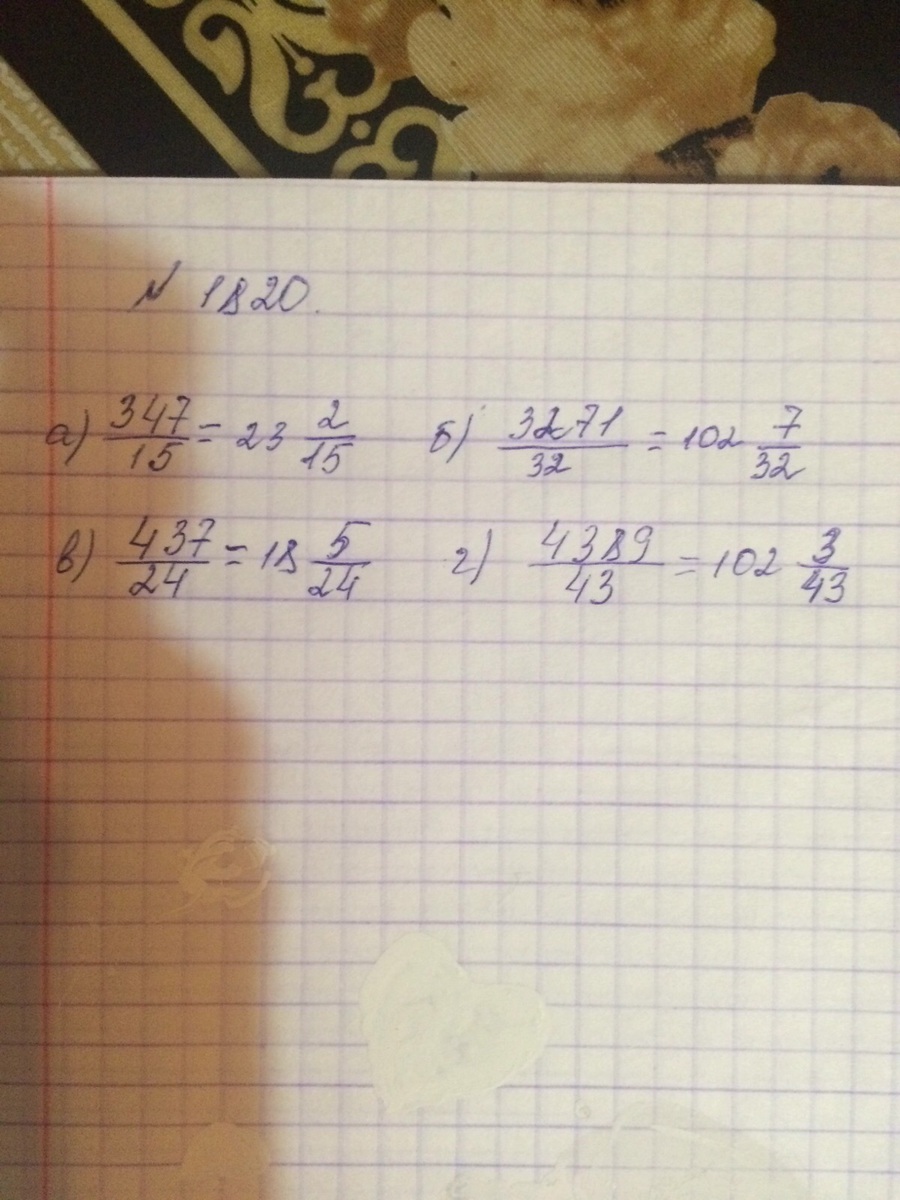 № 1820.
а) 347/15 = 23 2/15 б) 3271/32 = 102 7/32
в) 437/24 = 18 5/24 г) 4389/43 = 102 3/43